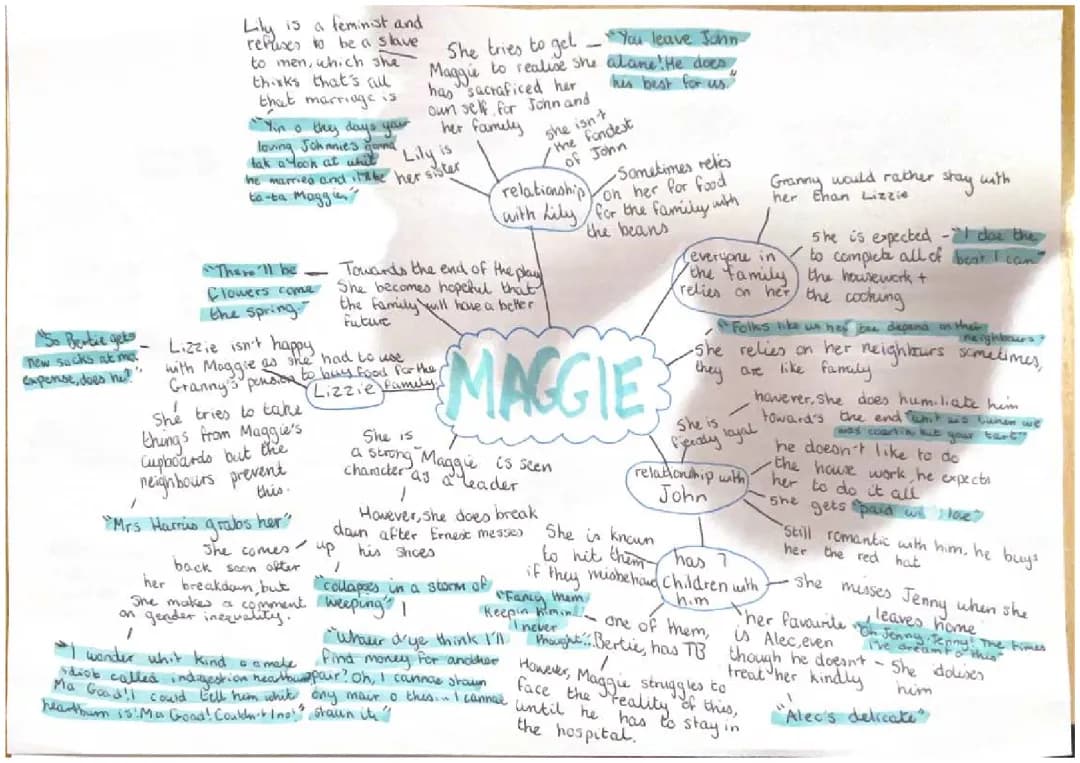 Lily is a feminist and
refuses to be a slave
to men, which she
thinks that's all
that marriage is
"Yin o they days your
loving Johnnie's gonna
tak a look at whit
he married and it'll be
ta-ta Maggie."
Lily is
her sister
She tries to get
Maggie to realise she
has sacraficed her
own self for John and
her family
"You leave John
alane! He does
his best for us."
she isn't
the fondest
of John
relationship
with Lily
Sometimes relies
on her for food
for the family with
the beans
Granny would rather stay with
her than Lizzie
everyone in
the family
relies on her
She is expected
to complete all of
the housework +
the cooking
"I dae the
best I can"
"There'll be
flowers come
the spring."
Towards the end of the play
She becomes hopeful that
the family will have a better
future
"Folks like us hev tae depend on their
neighbours"
She relies on her neighbours sometimes,
they are like family
MAGGIE
"So Bertie gets
new socks at ma
expense, does he?"
Lizzie isn't happy
with Maggie as she had to use
Granny's pension to buy food for the
family
Lizzie
She tries to take
things from Maggie's
cupboards but the
neighbours prevent
this.
"Mrs Harris grabs her"
She is
a strong
character
Maggie is seen
as a leader
However, she does break
down after Ernest messes
up his shoes
"collapses in a storm of
weeping"
"Whaur d'ye think I'll
find money for another
pair? Oh, I cannae staun
ony mair o this... I cannae
staun it."
She comes
back soon after
her breakdown, but
she makes a comment
on gender inequality.
"I wonder whit kind o a male
idiot called indigestion heartburn?
Ma God! I could tell him whit
heartburn is! Ma God! Couldn't I no!"
She is
fiercly loyal
however, she does humiliate him
toward's the end "whit wis I when we
was coortin but your tart"
relationship with
John
he doesn't like to do
the house work, he expects
her to do it all
she gets "paid wi love"
Still romantic with him, he buys
her the red hat
has 7
children with
him
She is known
to hit them
if they misbehave
"Fancy them
keepin him in!
I never
thought"
one of them,
Bertie, has TB
However, Maggie struggles to
face the reality of this,
until he has to stay in
the hospital.
her favourite
is Alec, even
though he doesn't
treat her kindly
She idolises
him
"Alec's delicate"
she misses Jenny when she
leaves home
"Oh Jenny, Jenny! The times
I've dreamt o this"